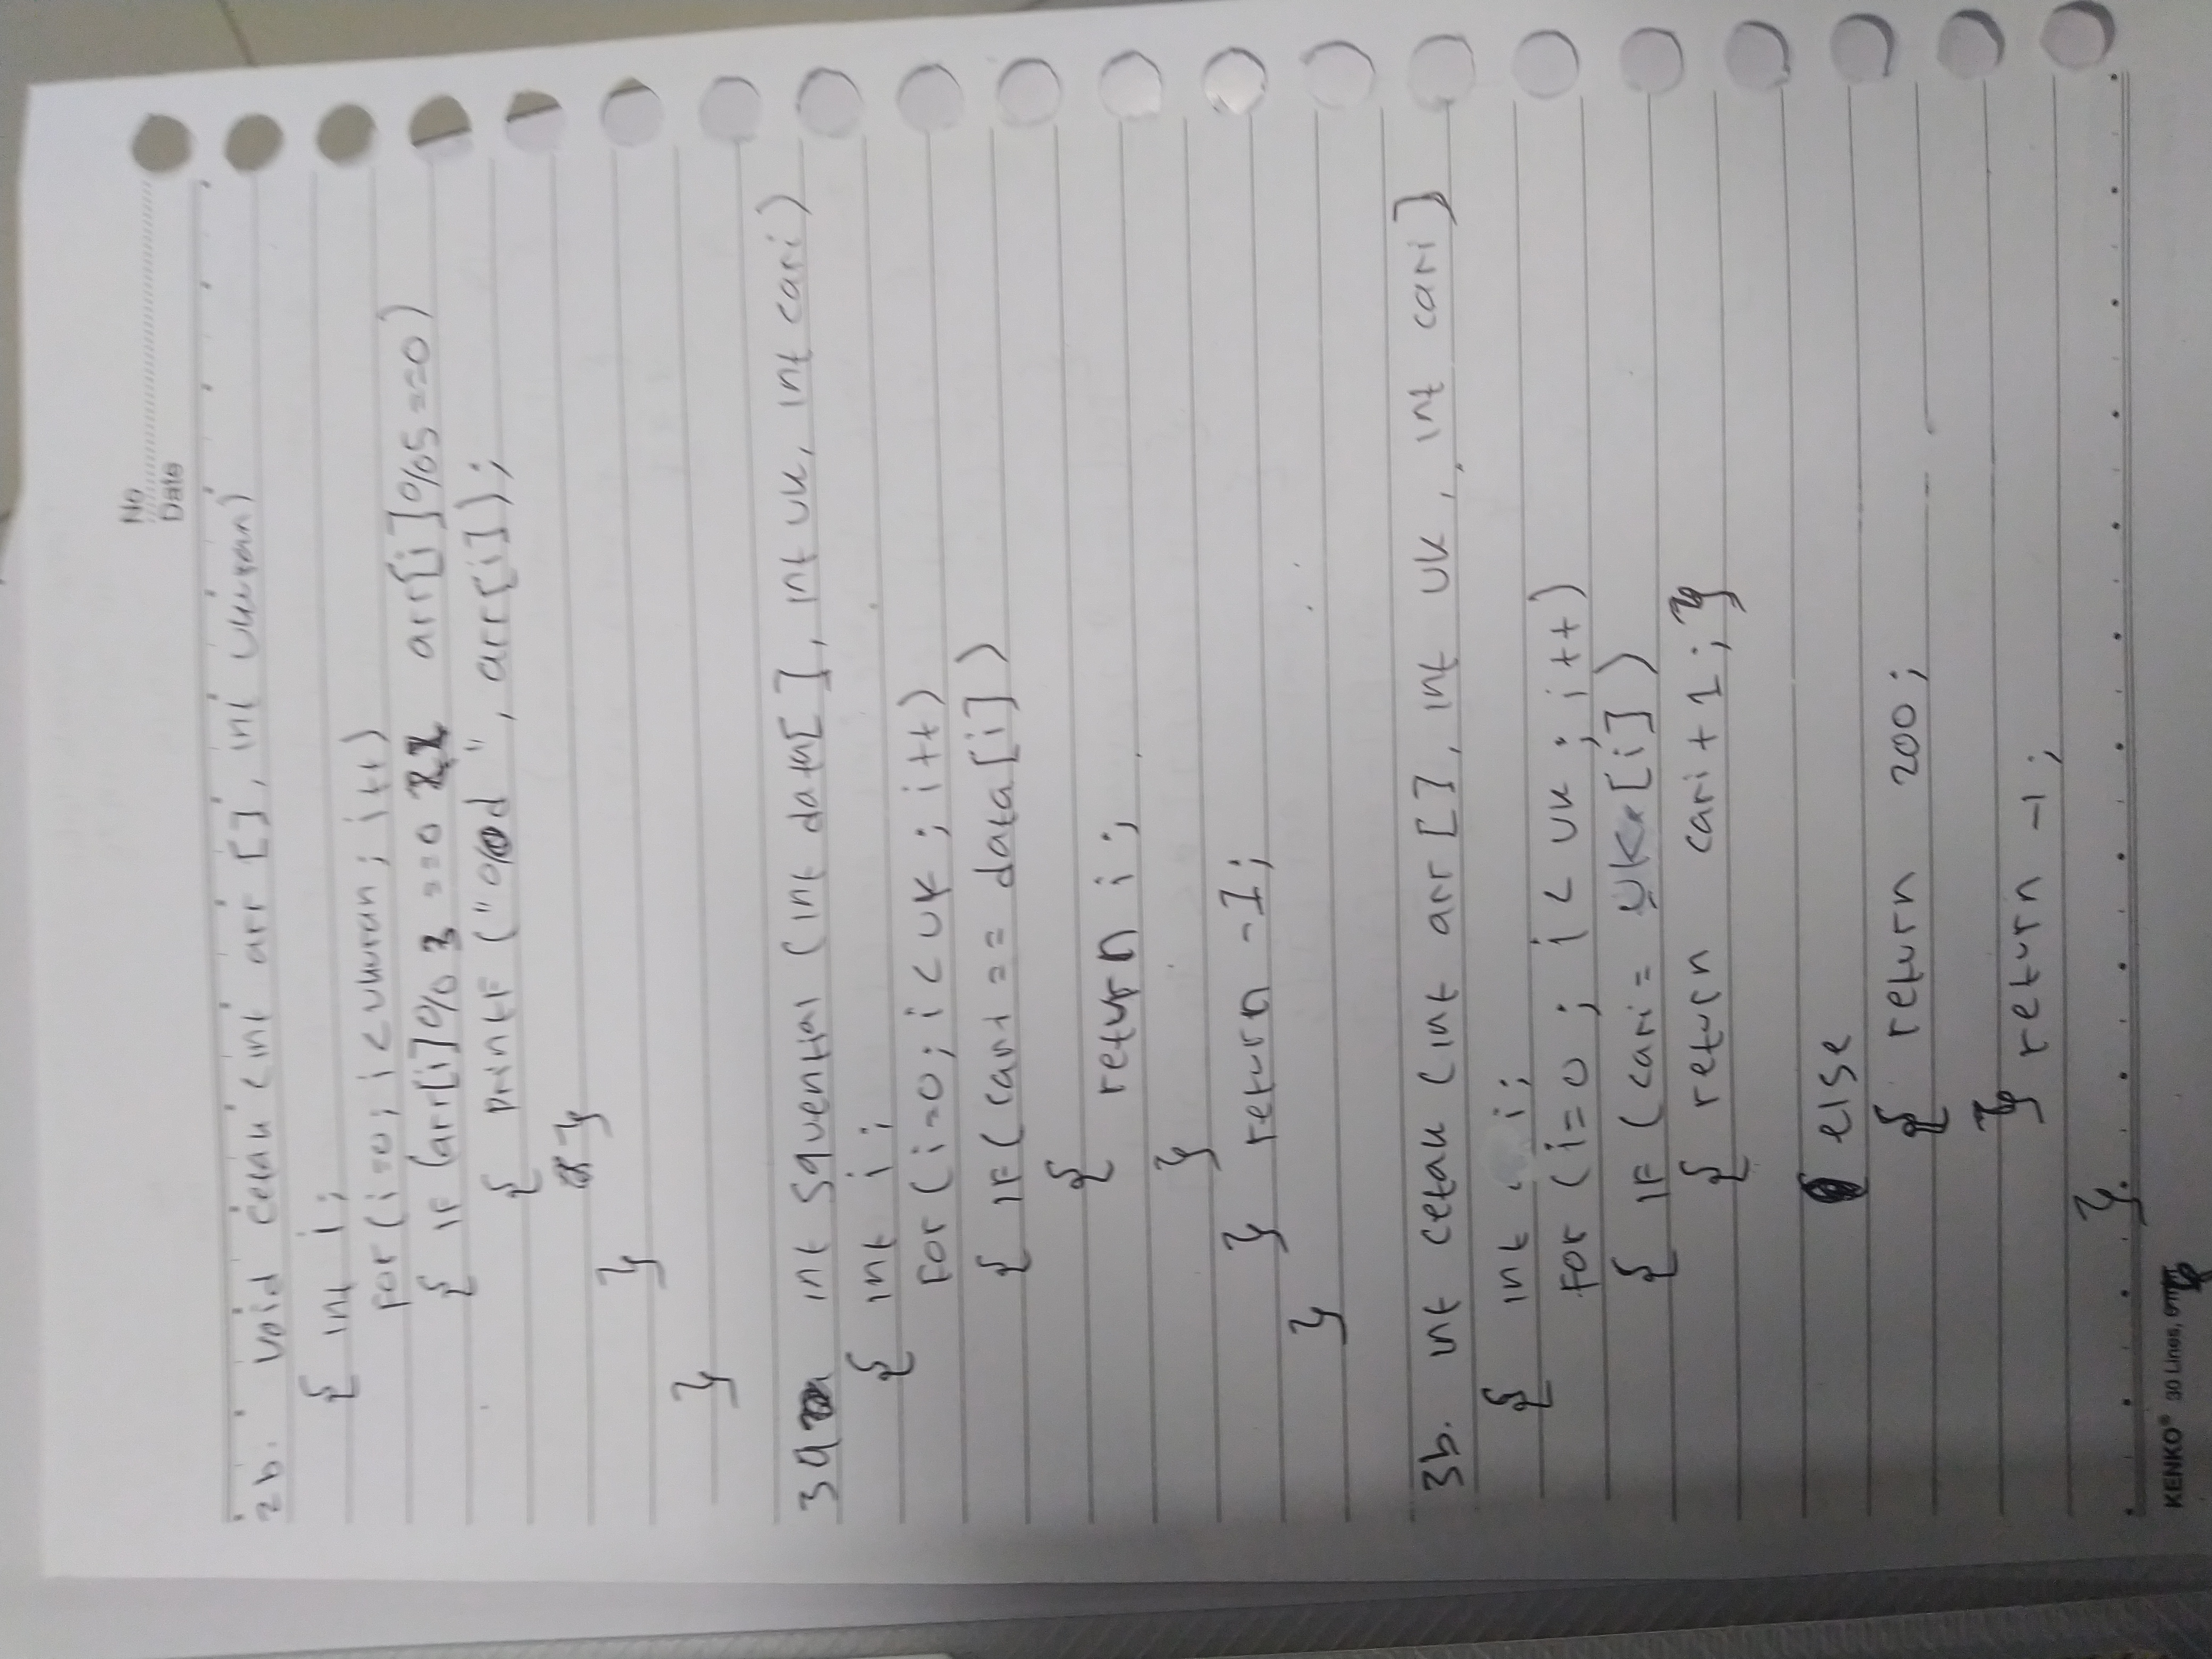 No
Date
2b. void cetak (int arr [], int ukuran)
{ int i;
for (i=0; i<ukuran; i++)
{ if (arr[i]%3 ==0 && arr[i]%5==0)
{ printf ("%d ", arr[i]);
}
}
}
3a int squential (int data[], int uk, int cari)
{ int i;
for (i=0; i<uk; i++)
{ if (cari == data[i])
{
return i;
}
} return -1;
}
3b. int cetak (int arr [], int uk, int cari]
{ int i;
for (i=0; i<uk; i++)
{ if (cari= uk[i])
{ return cari+1; }
else
{ return 200;
} return -1;
}
KENKO® 30 Lines,
}